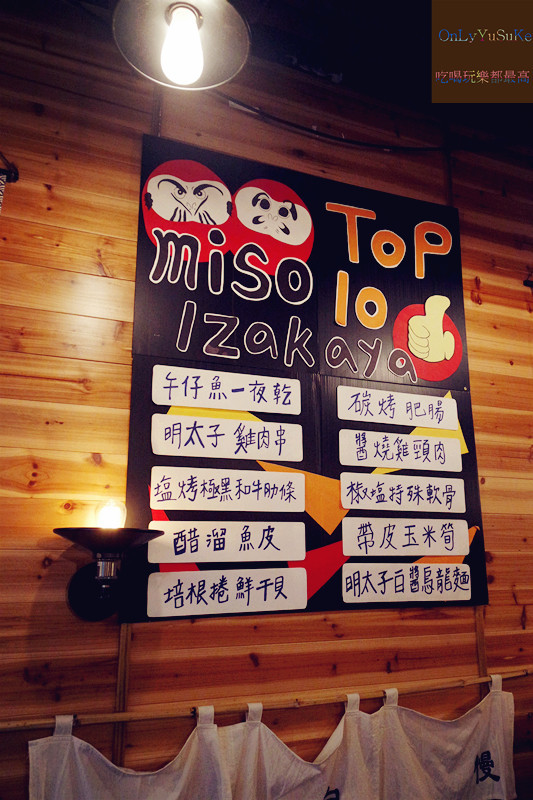 OnLyYuSuKe
吃喝玩樂都最高
miso
Top
10
Izakaya
午仔魚一夜乾
明太子雞肉串
塩烤極黑和牛肋條
醋溜魚皮
培根捲鮮干貝
碳烤肥腸
醬燒雞頸肉
椒塩特殊軟骨
帶皮玉米筍
明太子白醬烏龍麵
慢